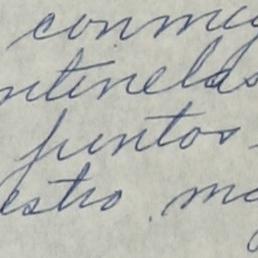 conmig
ntinelas
juntos
estro m